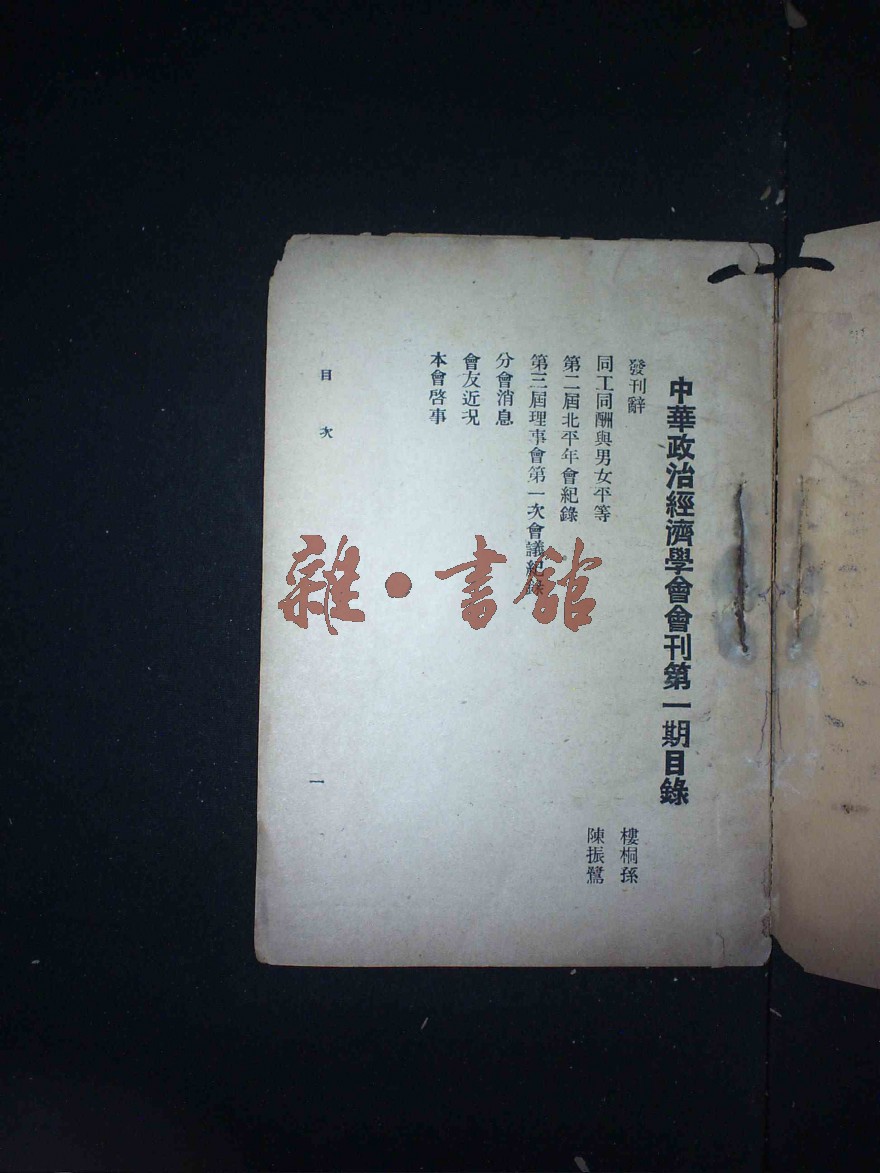 中華政治經濟學會會刊第一期目錄
發刊辭 樓桐孫
同工同酬與男女平等 陳振鷺
第二屆北平年會紀錄
第三屆理事會第一次會議紀錄
分會消息
會友近況
本會啓事
目次 一
雜·書館